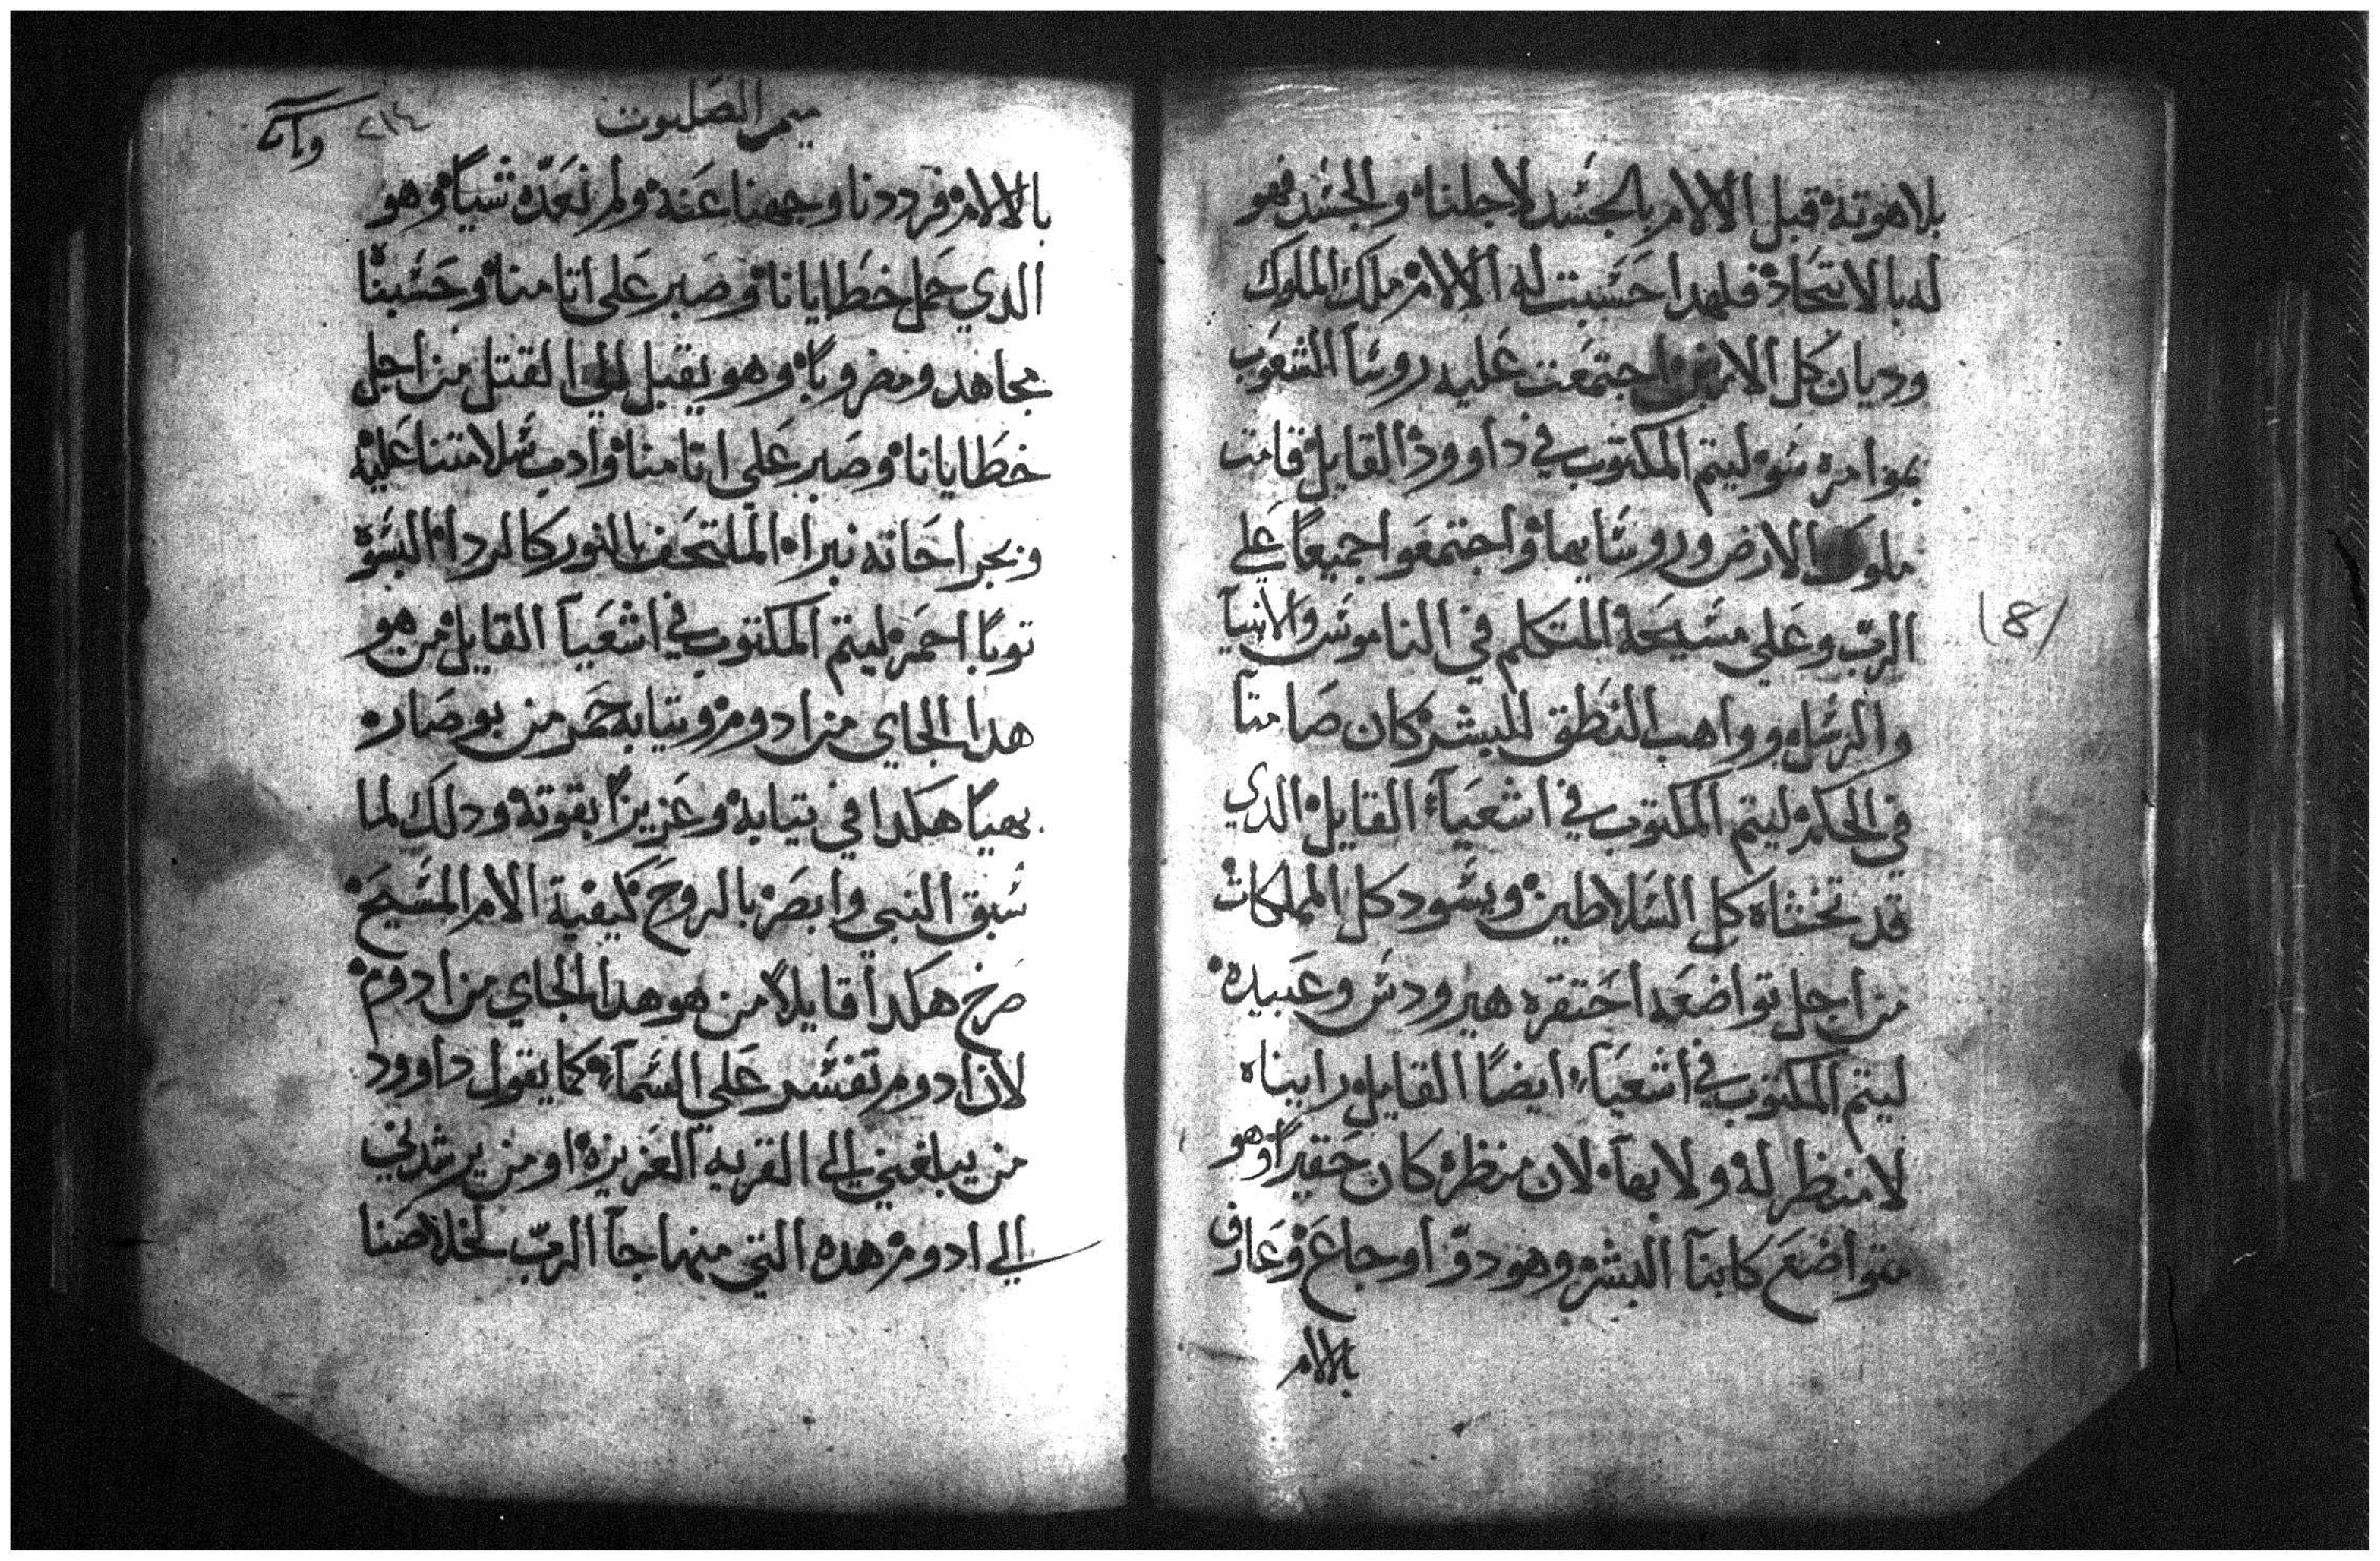 بلاهوته قبل الالام بالجسد لاجلنا والجسد فهو
له بالاتحاد فلهدا حسبت له الالام ملك الملوك
وديان كل الارض اجتمعت عليه روسا الشعوب
بموامرة سو ليتم المكتوب في داوود القايل قامت
ملوك الارض وروسايها واجتمعوا جميعاً علي
الربّ وعلي مسيحه المتكلم في الناموس والانبيآ
والرسل وواهب النطق للبشر كان صامتاً
في الحكم ليتم المكتوب في اشعيآ القايل الدي
قد تخشاه كل السلاطين ويسود كل المملكات
من اجل تواضعه احتقره هيرودس وعبيده
ليتم المكتوب في اشعيآ ايضاً القايل رايناه
لا منظر له ولا بهآ لان منظره كان حقيراً وهو
متواضع كابنآ البشر وهو دو اوجاع وعارف
بالالام
181
ميمر الصلبوت
٢١٤
بالالام فرددنا وجهنا عنه ولم نعدّه شياً وهو
الدي حمل خطايانا وصبر علي اتامنا وحسبنا
مجاهد ومضروباً وهو يقبل الي القتل من اجل
خطايانا وصبر علي اتامنا وادب سلامتنا عليه
وبجراحاته نبرا الملتحف بالنور كالردا البسوه
توباً احمر ليتم المكتوب في اشعيآ القايل من هو
هدا الجاي من ادوم وتيابه حمر من بوصاره
بهياً هكدا في تيابه وعزيزاً بقوته ودلك لما
سبق النبي وابصر بالروح كيفية الام المسيح
صرخ هكدا قايلاً من هو هدا الجاي من ادوم
لان ادوم تفسر علي السمآ كما يقول داوود
من يبلغني الي القريه العزيزه او من يرشدني
الي ادوم هده التي منها جآ الربّ لخلاصنا